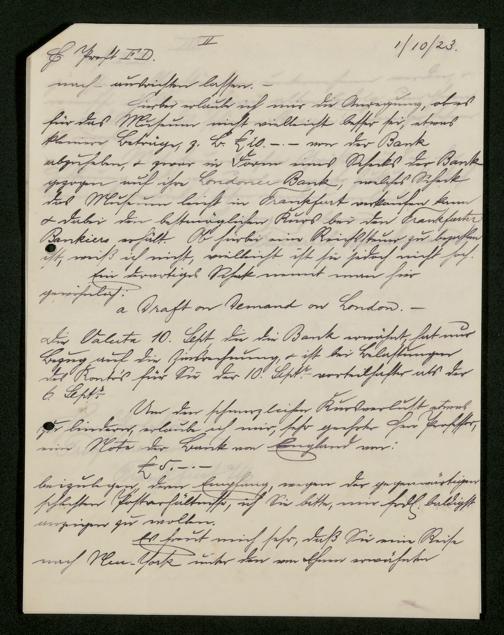 II
Prof. F. D. 1/10/23.
nach ausrichten lassen. –
Hierbei erlaube ich mir die Anregung, ob es
für das Museum nicht vielleicht besser sei, etwas
kleinere Beträge, z. B. £ 10. – . – von der Bank
abzuheben, & zwar in Form eines Schecks der Bank
gezogen auf ihre Londoner Bank, welches Scheck
das Museum leicht in Frankfurt verkaufen kann
& dabei den bestmöglichen Kurs bei den Frankfurter
Bankiers erhält. Ob hierbei eine Reichssteuer zu bezahlen
ist, weiß ich nicht, vielleicht ist sie jedoch nicht hoch.
Ein derartiges Scheck nennt man hier
gewöhnlich:
a Draft on Demand on London. –
Die Valuta 10. Sept die die Bank erwähnt hat nur
Bezug auf die Zinsrechnung, & ist bei Belastungen
des Kontos für Sie der 10. Sept. vorteilhafter als der
6 Sept.
Um den schmerzlichen Kursverlust etwas
zu lindern, erlaube ich mir, sehr geehrter Herr Professor,
eine Note der Bank von England von:
£ 5. – . –
beizulegen, deren Empfang, wegen der gegenwärtigen
schlechten Postverhältnisse, ich Sie bitte, mir frdl. baldigst
anzeigen zu wollen.
Es freut mich sehr, daß Sie eine Reise
nach New-York unter den von Ihnen erwähnten